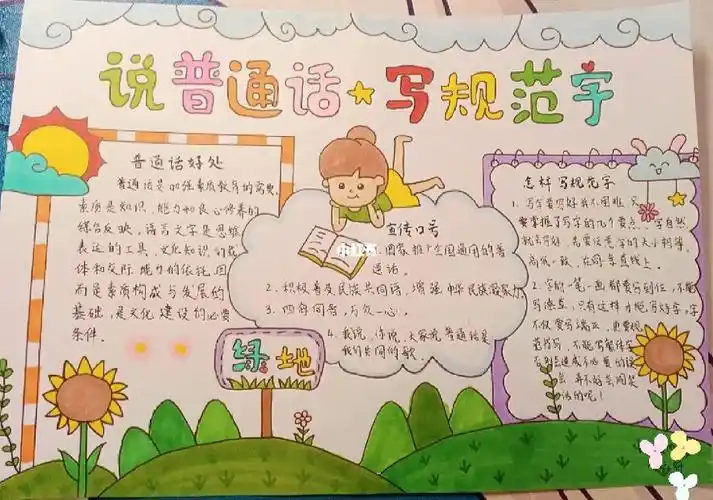 说普通话★写规范字
普通话好处
普通话是加强素质教育的需要,
素质是知识、能力和良心修养的
综合反映,语言文字是思维
表达的工具、文化知识的载
体和交际能力的依托,因
而是素质构成与发展的
基础,是文化建设的必要
条件.
宣传口号
1.国家推广全国通用的普
通话.
2.积极普及民族共同语,增强中华民族凝聚力
3.四海同音,万众一心.
4.我说,你说,大家说,普通话是
我们共同的歌.
小红书
绿地
怎样写规范字
1.写字要写好并不困难,只
要掌握了写字的几个要点,字自然
就
高低一致,在同条直线上.
2.字的一笔一画都要到位,不能
写潦草,只有这样才能写好字,字
不仅要写端正,更要规
范书写,不能写繁体字